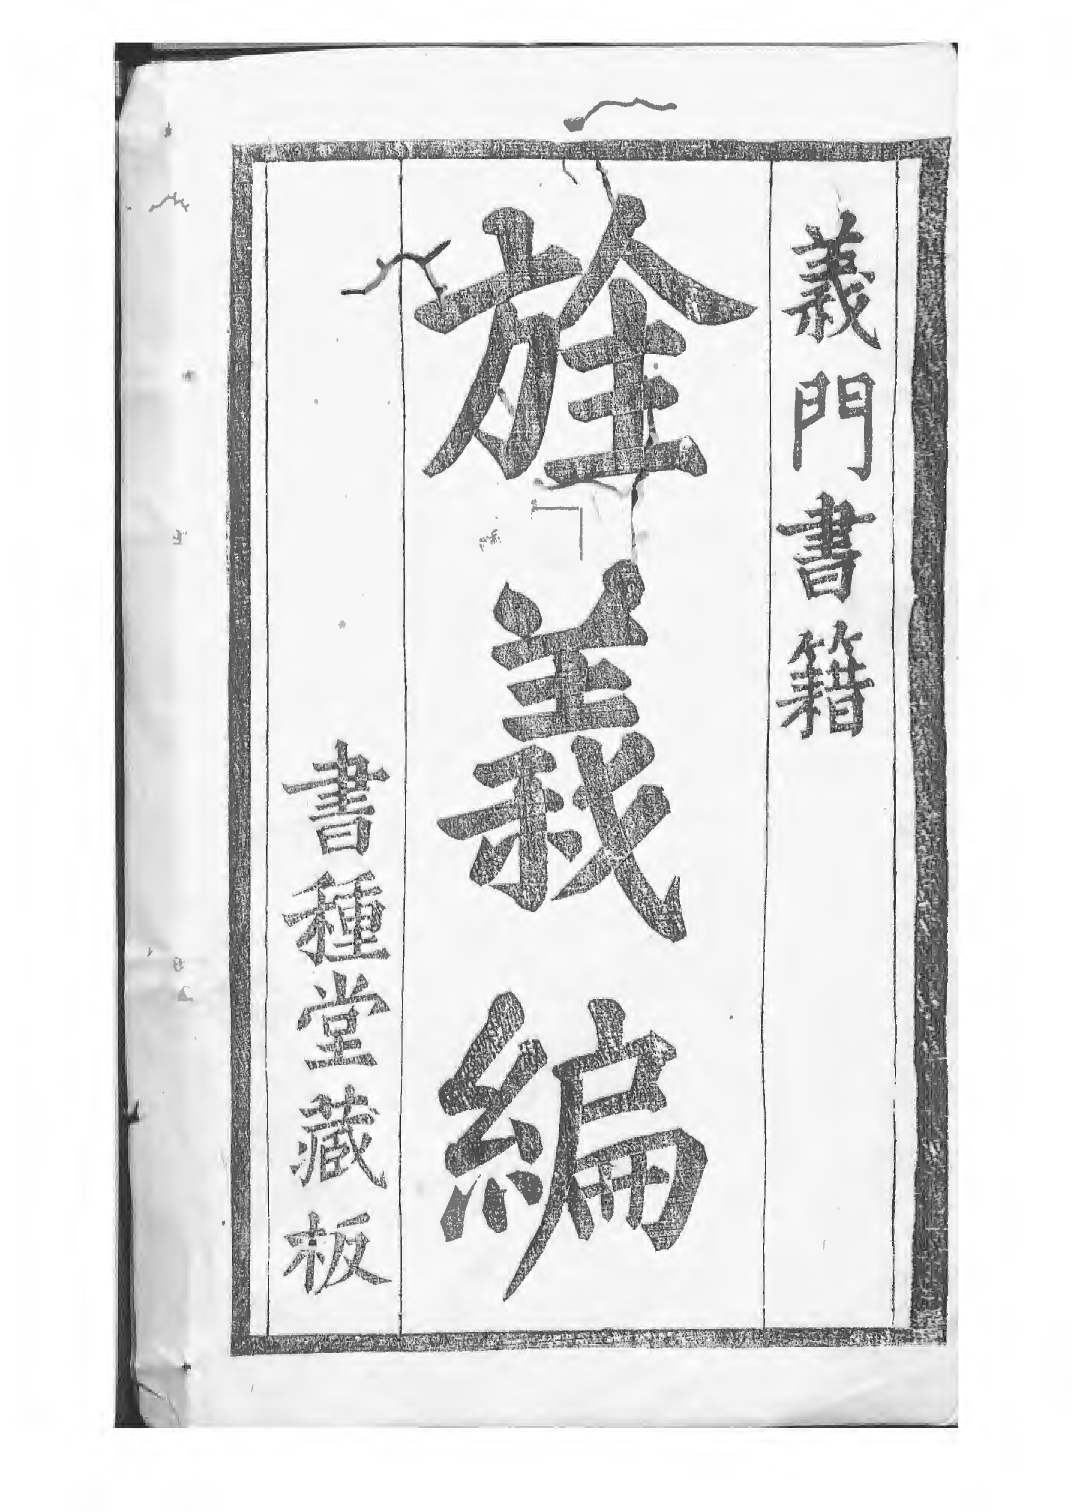 義門書籍
旌義編
書種堂藏板